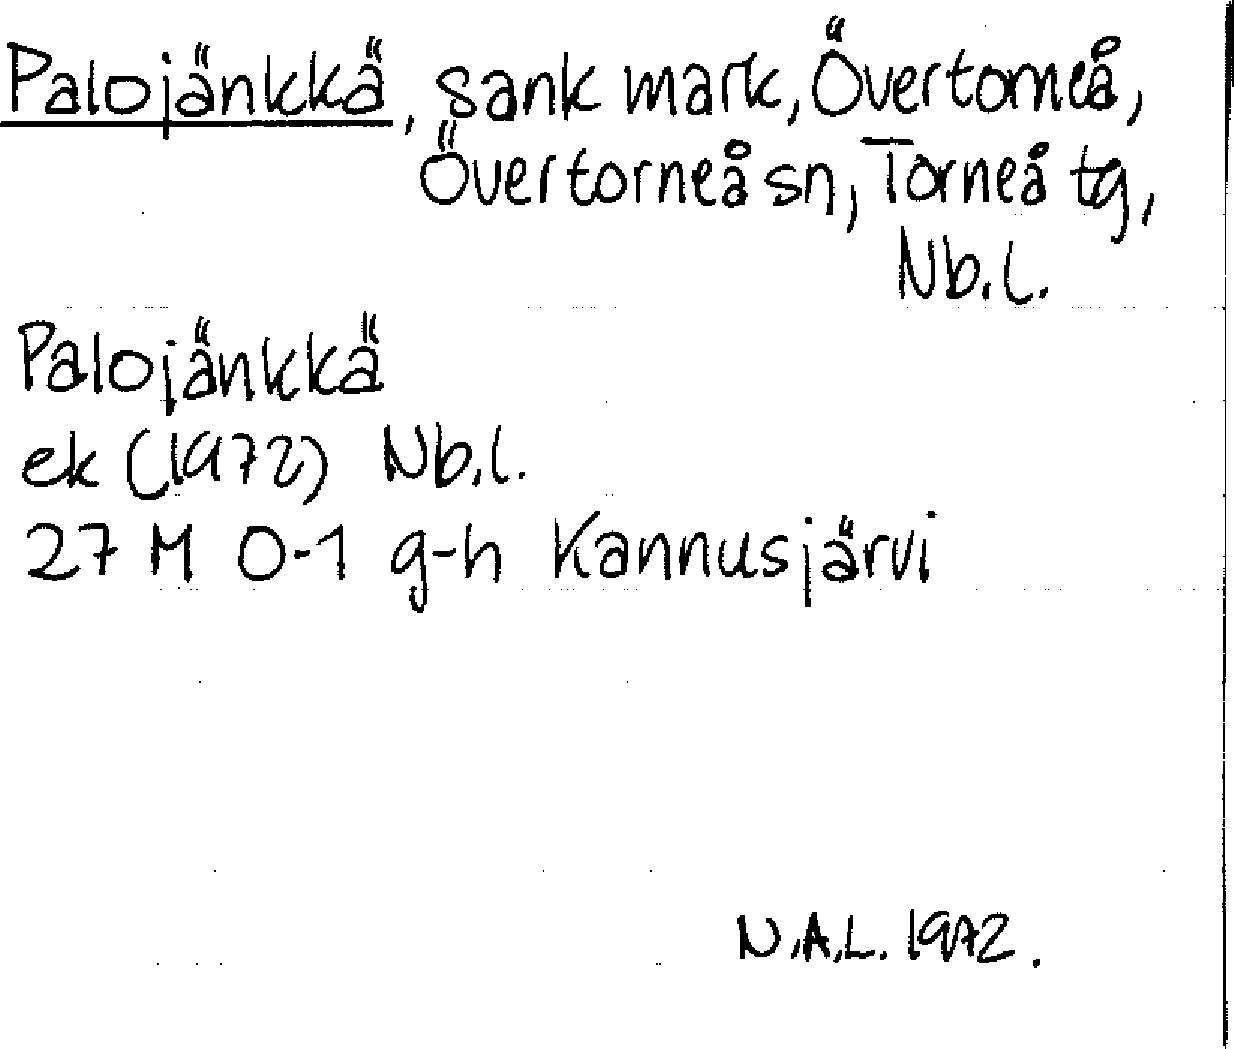 Palojänkkä, sank mark, Övertorneå,
Övertorneå sn, Torneå tg,
Nb.l.
Palojänkkä
ek (1972) Nb.l.
27 M 0-1 g-h Kannusjärvi
N.A.L. 1972.